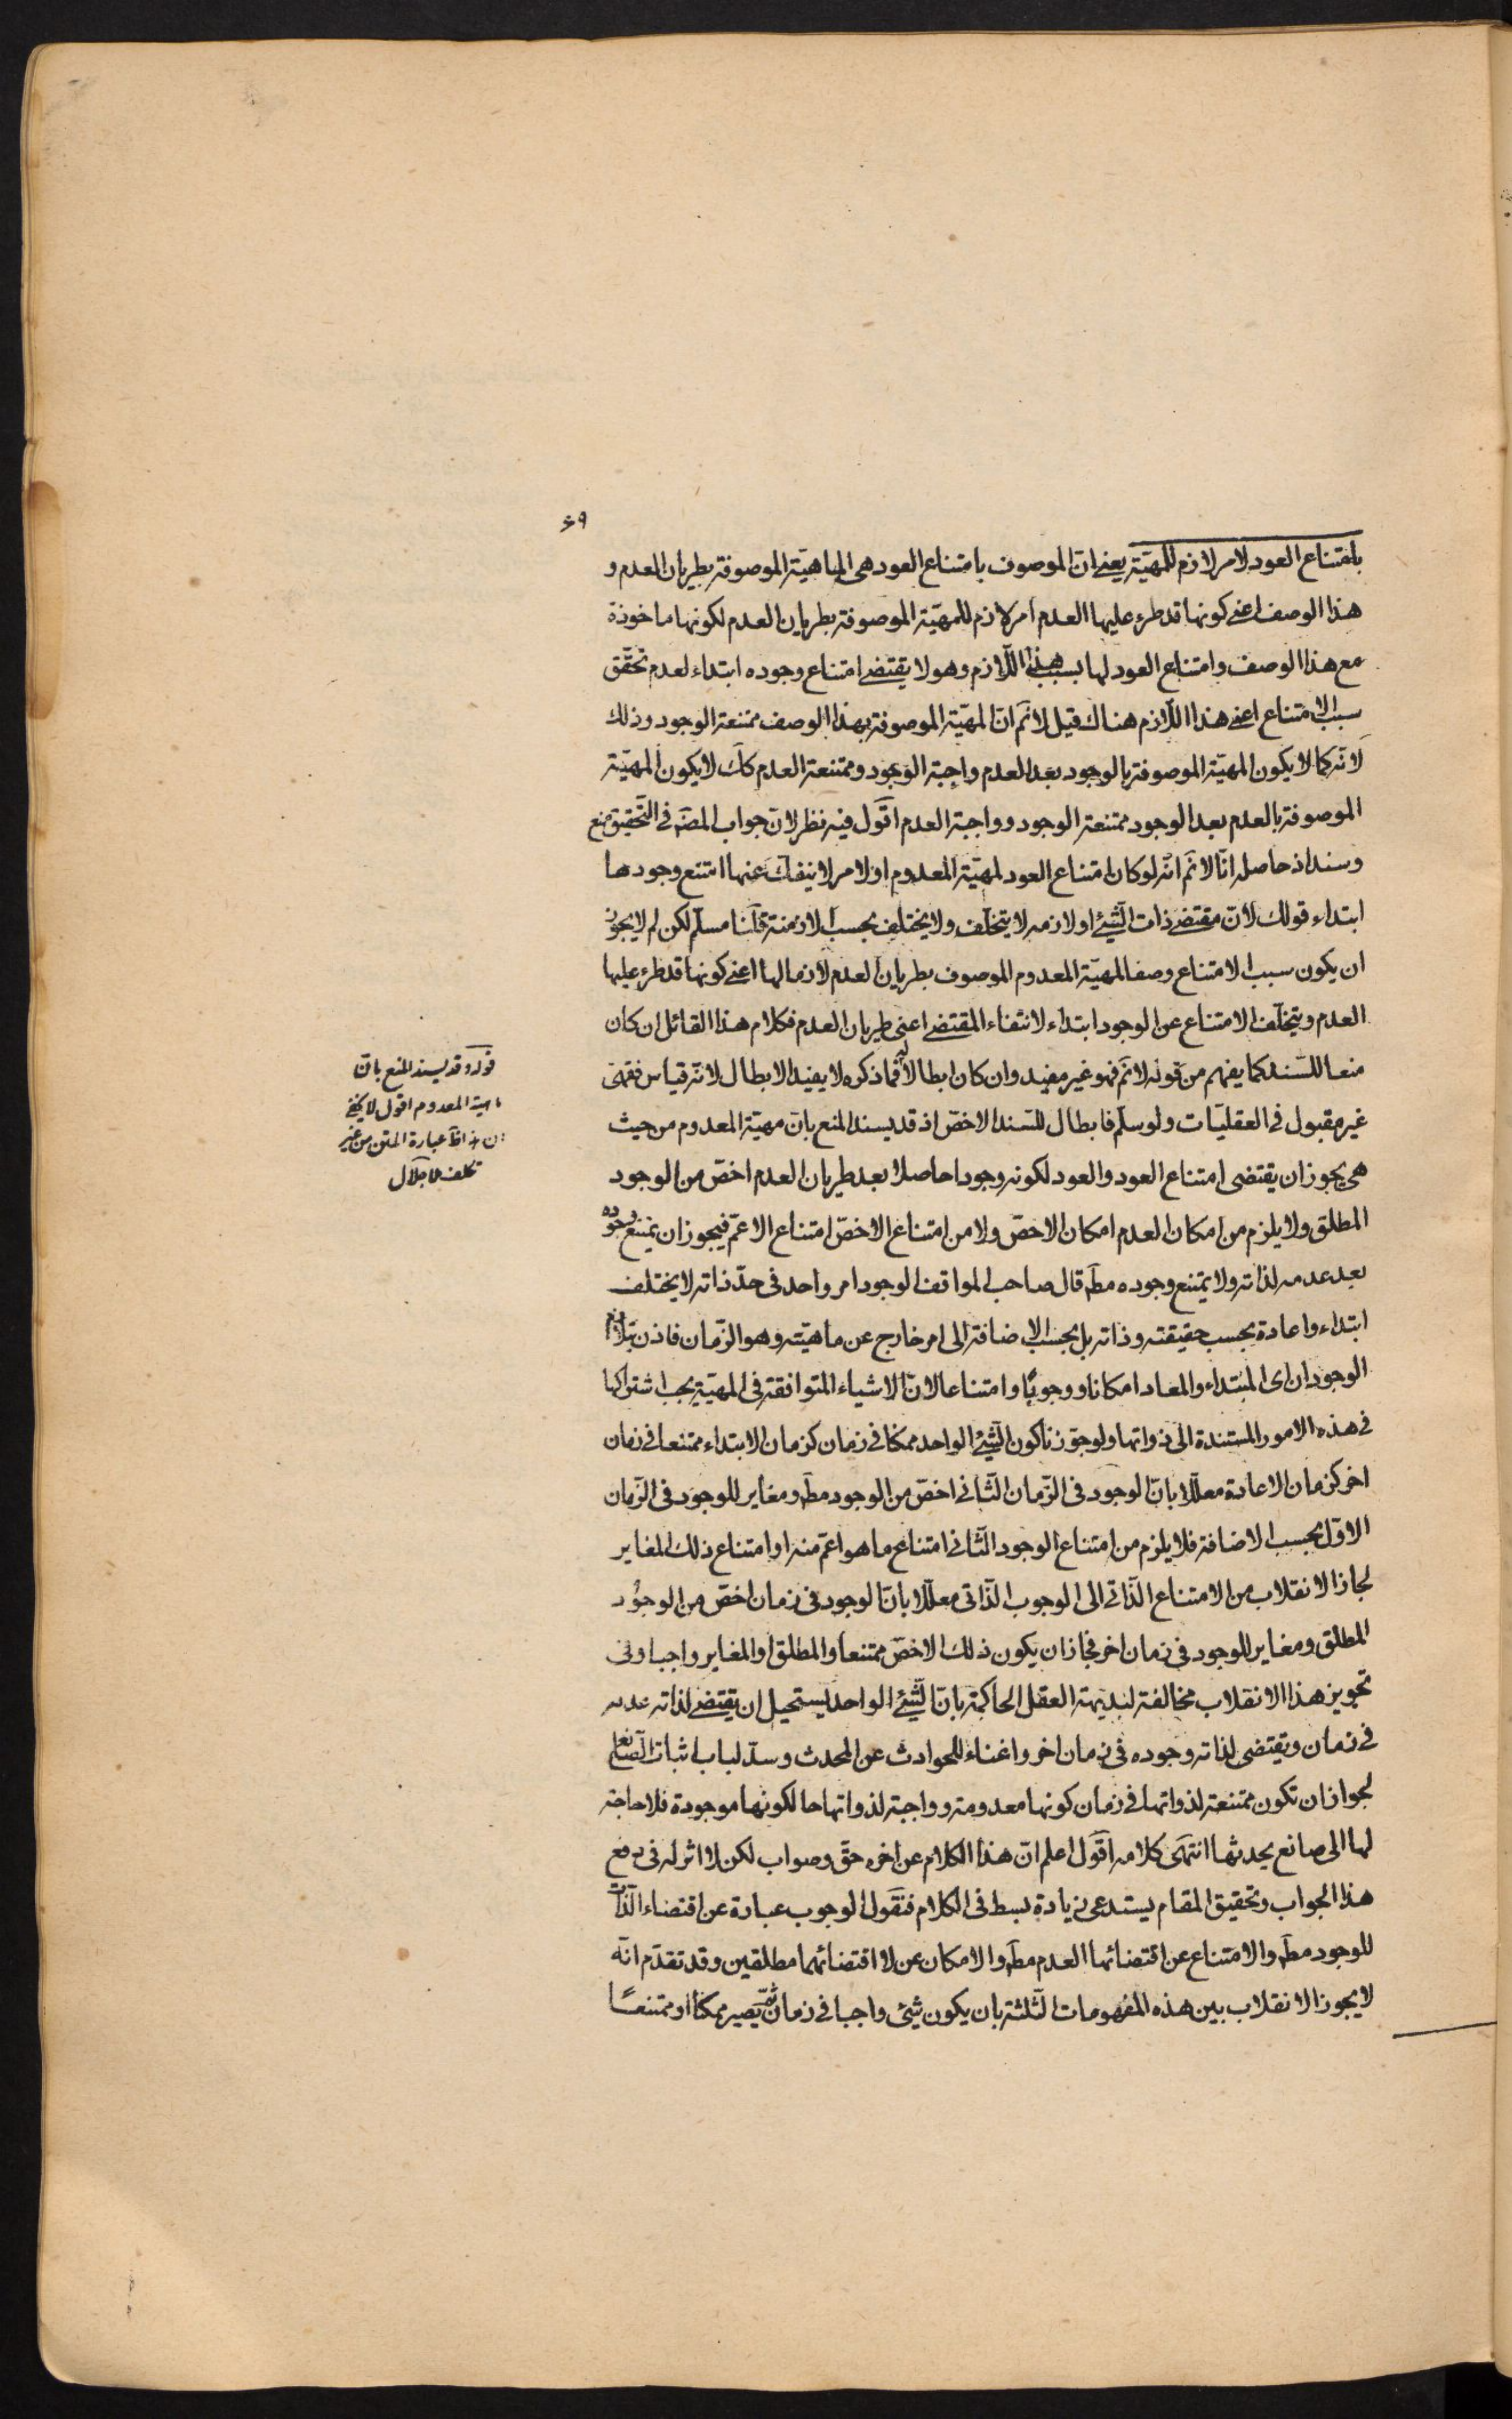 ۶۹
بامتناع العود لامر لازم للمهيّة يعنى انّ الموصوف بامتناع العود هى الماهيّة الموصوفة بطريان العدم و
هذا الوصف اعنى كونها قد طرء عليها العدم امر لازم للمهيّة الموصوفة بطريان العدم لكونها ماخوذة
مع هذا الوصف وامتناع العود لها بسبب هذا اللّازم وهو لا يقتضى امتناع وجوده ابتداء لعدم تحقّق
سبب الامتناع اعنى هذا اللّازم هناك قيل لا نمّ انّ المهيّة الموصوفة بهذا الوصف ممتنعة الوجود وذلك
لانّه كما لا يكون المهيّة الموصوفة بالوجود بعد العدم واجبة الوجود وممتنعة العدم كك لا يكون المهيّة
الموصوفة بالعدم بعد الوجود ممتنعة الوجود وواجبة العدم اقول فيه نظر لانّ جواب المصّ فى التّحقيق منع
وسند اذ حاصله انّا لا نمّ انّه لو كان امتناع العود لمهيّة المعدوم او لامر لا ينفكّ عنها امتنع وجودها
ابتداء قولك لانّ مقتضى ذات الشّئ او لازمه لا يتخلّف ولا يختلف بحسب الازمنة قلنا مسلّم لكن لم لا يجوز
ان يكون سبب الامتناع وصف المهيّة المعدوم الموصوف بطريان العدم لازما لها اعنى كونها قد طرء عليها
العدم ويتخلّف الامتناع عن الوجود ابتداء لانتفاء المقتضى اعنى طريان العدم فكلام هذا القائل ان كان
منعا للسّند كما يفهم من قوله لا نمّ فهو غير مفيد وان كان ابطالا له فما ذكره لا يفيد الابطال لانّه قياس فقهى
غير مقبول فى العقليّات ولو سلّم فابطال للسّند الاخصّ اذ قد يسند المنع بانّ مهيّة المعدوم من حيث
هى يجوز ان يقتضى امتناع العود والعود لكونه وجودا حاصلا بعد طريان العدم اخصّ من الوجود
المطلق ولا يلزم من امكان العدم امكان الاخصّ ولا من امتناع الاخصّ امتناع الاعمّ فيجوز ان يمتنع وجوده
بعد عدمه لذاته ولا يمتنع وجوده مطّ قال صاحب المواقف الوجود امر واحد فى حدّ ذاته لا يختلف
ابتداء واعادة بحسب حقيقته وذاته بل بحسب الاضافة الى امر خارج عن ماهيّته وهو الزّمان فاذن يتلازم
الوجود ان اى المبتداء والمعاد امكانا ووجوبًا وامتناعا لانّ الاشياء المتوافقة فى المهيّة يجب اشتراكها
فى هذه الامور المستندة الى ذواتها ولو جوّزنا كون الشّئ الواحد ممكنا فى زمان كزمان الابتداء ممتنعا فى زمان
اخر كزمان الاعادة معلّلا بانّ الوجود فى الزّمان الثّانى اخصّ من الوجود مطّ ومغاير للوجود فى الزّمان
الاوّل بحسب الاضافة فلا يلزم من امتناع الوجود الثّانى امتناع ما هو اعمّ منه او امتناع ذلك المغاير
لجاز الانقلاب من الامتناع الذّاتى الى الوجوب الذّاتى معلّلا بانّ الوجود فى زمان اخصّ من الوجود
المطلق ومغاير للوجود فى زمان اخر فجاز ان يكون ذلك الاخصّ ممتنعا والمطلق او المغاير واجبا وفى
تجويز هذا الانقلاب مخالفة لبديهة العقل الحاكمة بانّ الشّئ الواحد يستحيل ان يقتضى لذاته عدمه
فى زمان ويقتضى لذاته وجوده فى زمان اخر واغناء للحوادث عن المحدث وسدّ لباب اثبات الصّانع
لجواز ان تكون ممتنعة لذواتها فى زمان كونها معدومة وواجبة لذواتها حال كونها موجودة فلا حاجة
لها الى صانع يحدثها انتهى كلامه اقول اعلم انّ هذا الكلام عن اخره حقّ وصواب لكن لا اثر له فى دفع
هذا الجواب وتحقيق المقام يستدعى زيادة بسط فى الكلام فنقول الوجوب عبارة عن اقتضاء الذّات
للوجود مطّ والامتناع عن اقتضائها العدم مطّ والامكان عن لا اقتضائهما مطلقين وقد تقدّم انّه
لا يجوز الانقلاب بين هذه المفهومات الثّلثة بان يكون شئ واجبا فى زمان ثمّ يصير ممكنا او ممتنعًا
قوله وقد يسند المنع بانّ
ماهية المعدوم اقول لا يخفى
ان هذا عبارة المتن من غير
تكلف